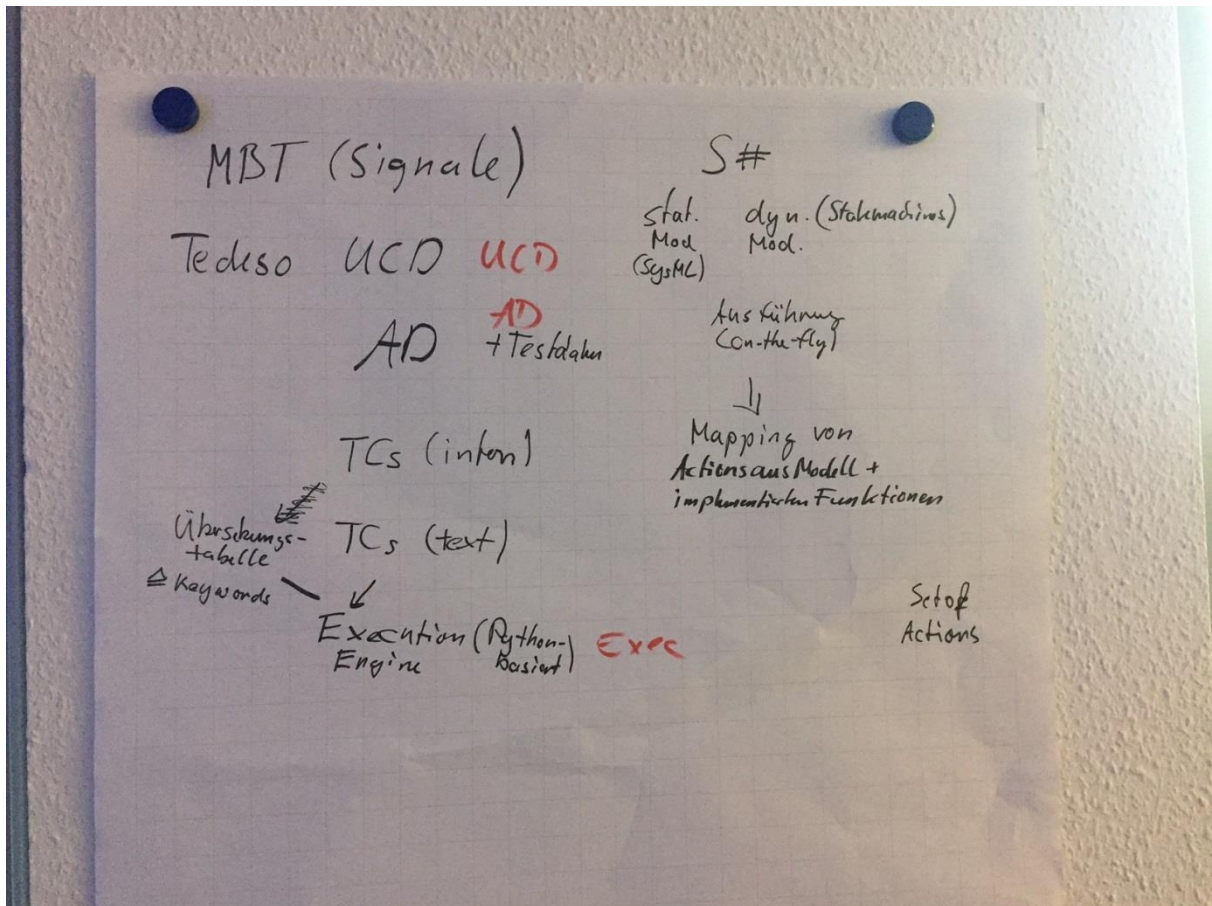 MBT (Signale)
Tedeso UCD UCD
AD AD
+ Testdaten
TCs (intern)
Übersetzungs-
tabelle
≙ Keywords
TCs (text)
Execution (Python-
Engine basiert) Exec
S#
stat. dyn. (Statemachines)
Mod Mod.
(SysML)
Ausführung
(on-the-fly)
⇓
Mapping von
Actions aus Modell +
implementierten Funktionen
Set of
Actions